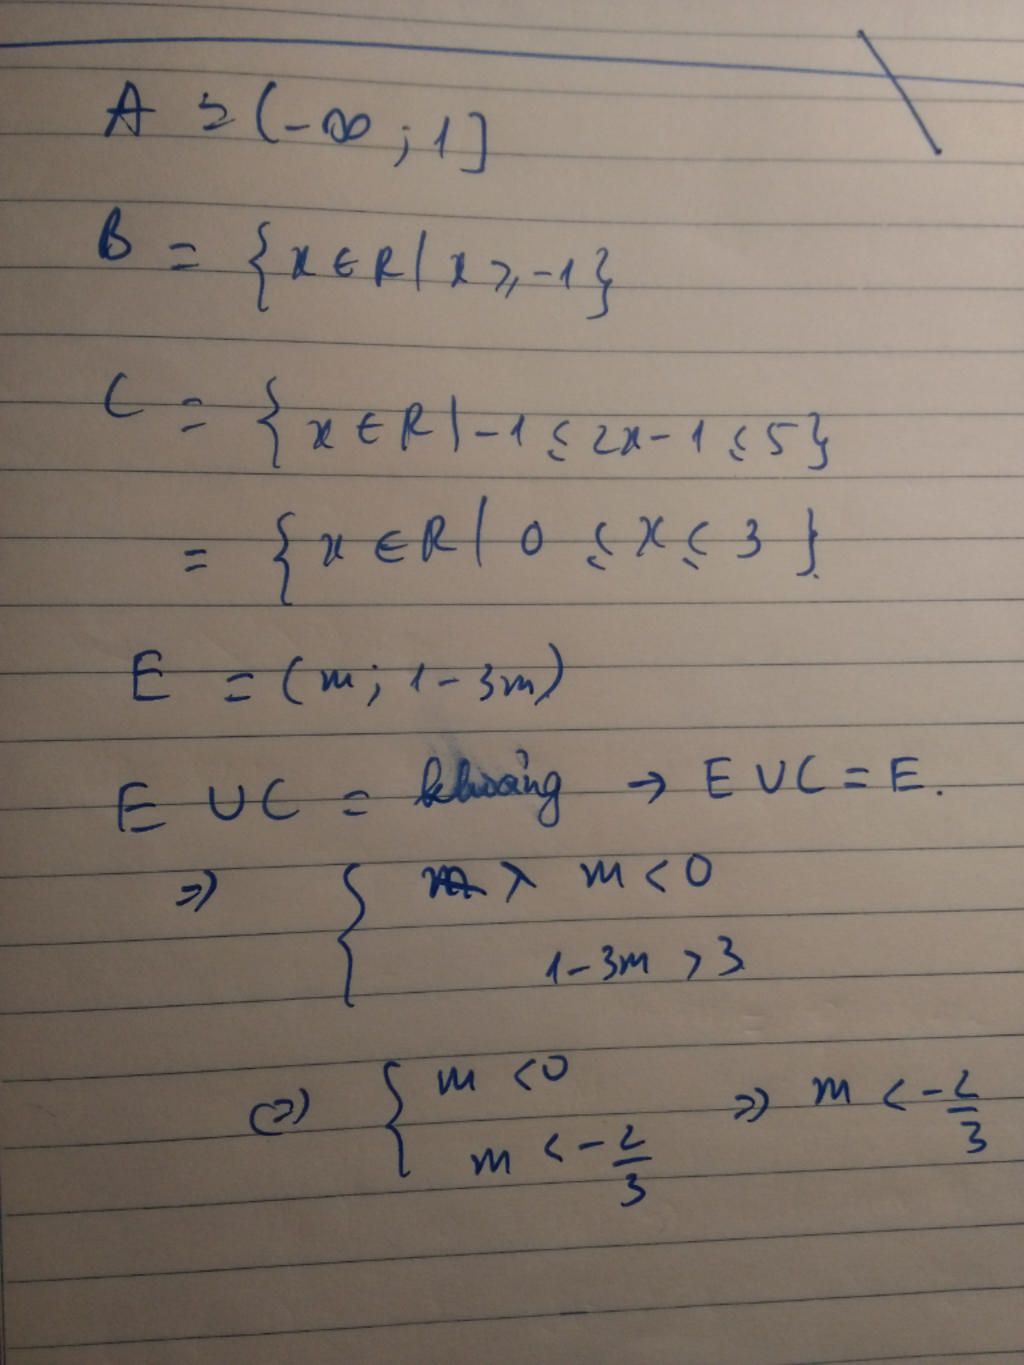 A = (-∞ ; 1]
B = {x ∈ R | x ⩾ -1}
C = {x ∈ R | -1 ≤ 2x - 1 ≤ 5}
= {x ∈ R | 0 ≤ x ≤ 3}.
E = (m; 1 - 3m)
E ∪ C = khoảng → E ∪ C = E.
=> { > m < 0
1 - 3m > 3
<=> { m < 0
m < -2/3 => m < -2/3